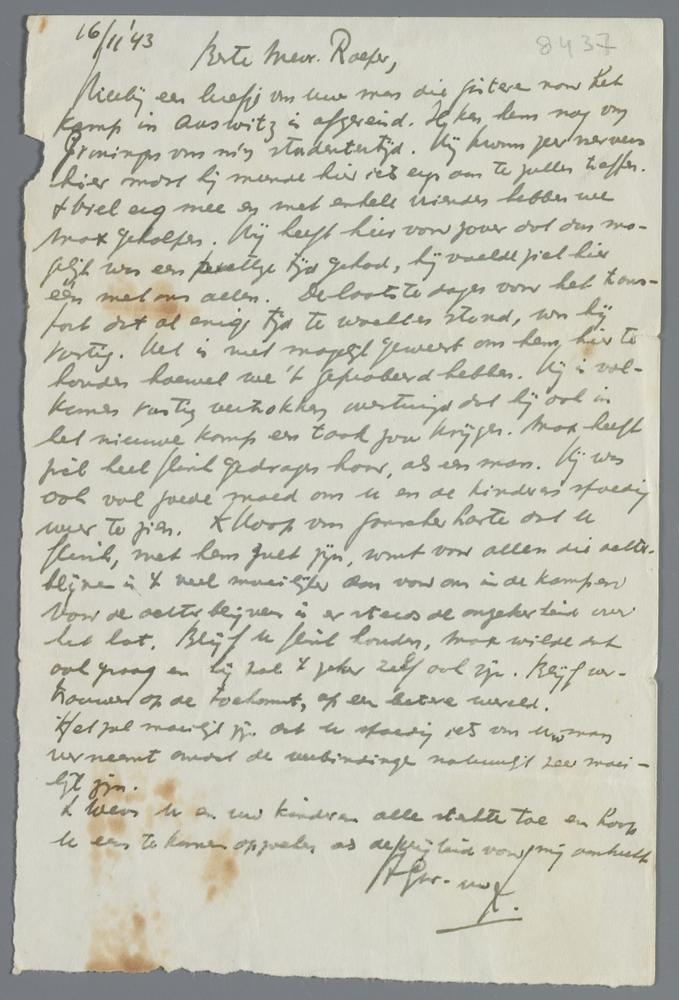 16/11 '43
8437
Beste Mevr. Roeper,
Hierbij een briefje van uw man die gisteren naar het
kamp in Auswitz is afgereisd. Ik ken hem nog van
Groningen van m'n studententijd. Hij kwam zeer nerveus
hier omdat hij meende hier iets ergs aan te zullen treffen.
't Viel erg mee en met enkele vrienden hebben we
Max geholpen. Hij heeft hier voor zover dat dan mo-
gelijk was een prettige tijd gehad, hij voelde zich hier
één met ons allen. De laatste dagen voor het trans-
port dat al enige tijd te wachten stond, was hij
rustig. Het is niet mogelijk geweest om hem hier te
houden hoewel we 't geprobeerd hebben. Hij is vol-
komen rustig vertrokken overtuigd dat hij ook in
het nieuwe kamp een taak zou krijgen. Max heeft
zich heel flink gedragen hoor, als een man. Hij was
ook vol goede moed om u en de kinderen spoedig
weer te zien. Ik hoop van ganscher harte dat u
flink, met hem zult zijn, want voor allen die achter-
blijven is 't veel moeilijker dan voor ons in de kampen
Voor de achterblijvers is er steeds de onzekerheid over
het lot. Blijf u flink houden, Max wilde dat
ook graag en hij zal 't zeker zelf ook zijn. Blijf ver-
trouwen op de toekomst, op een betere wereld.
Het zal moeilijk zijn dat u spoedig iets van uw man
verneemt omdat de verbindingen natuurlijk zeer moei-
lijk zijn.
Ik wens u en uw kinderen alle sterkte toe en hoop
u eens te komen opzoeken als de vrijheid voor mij aanbreekt